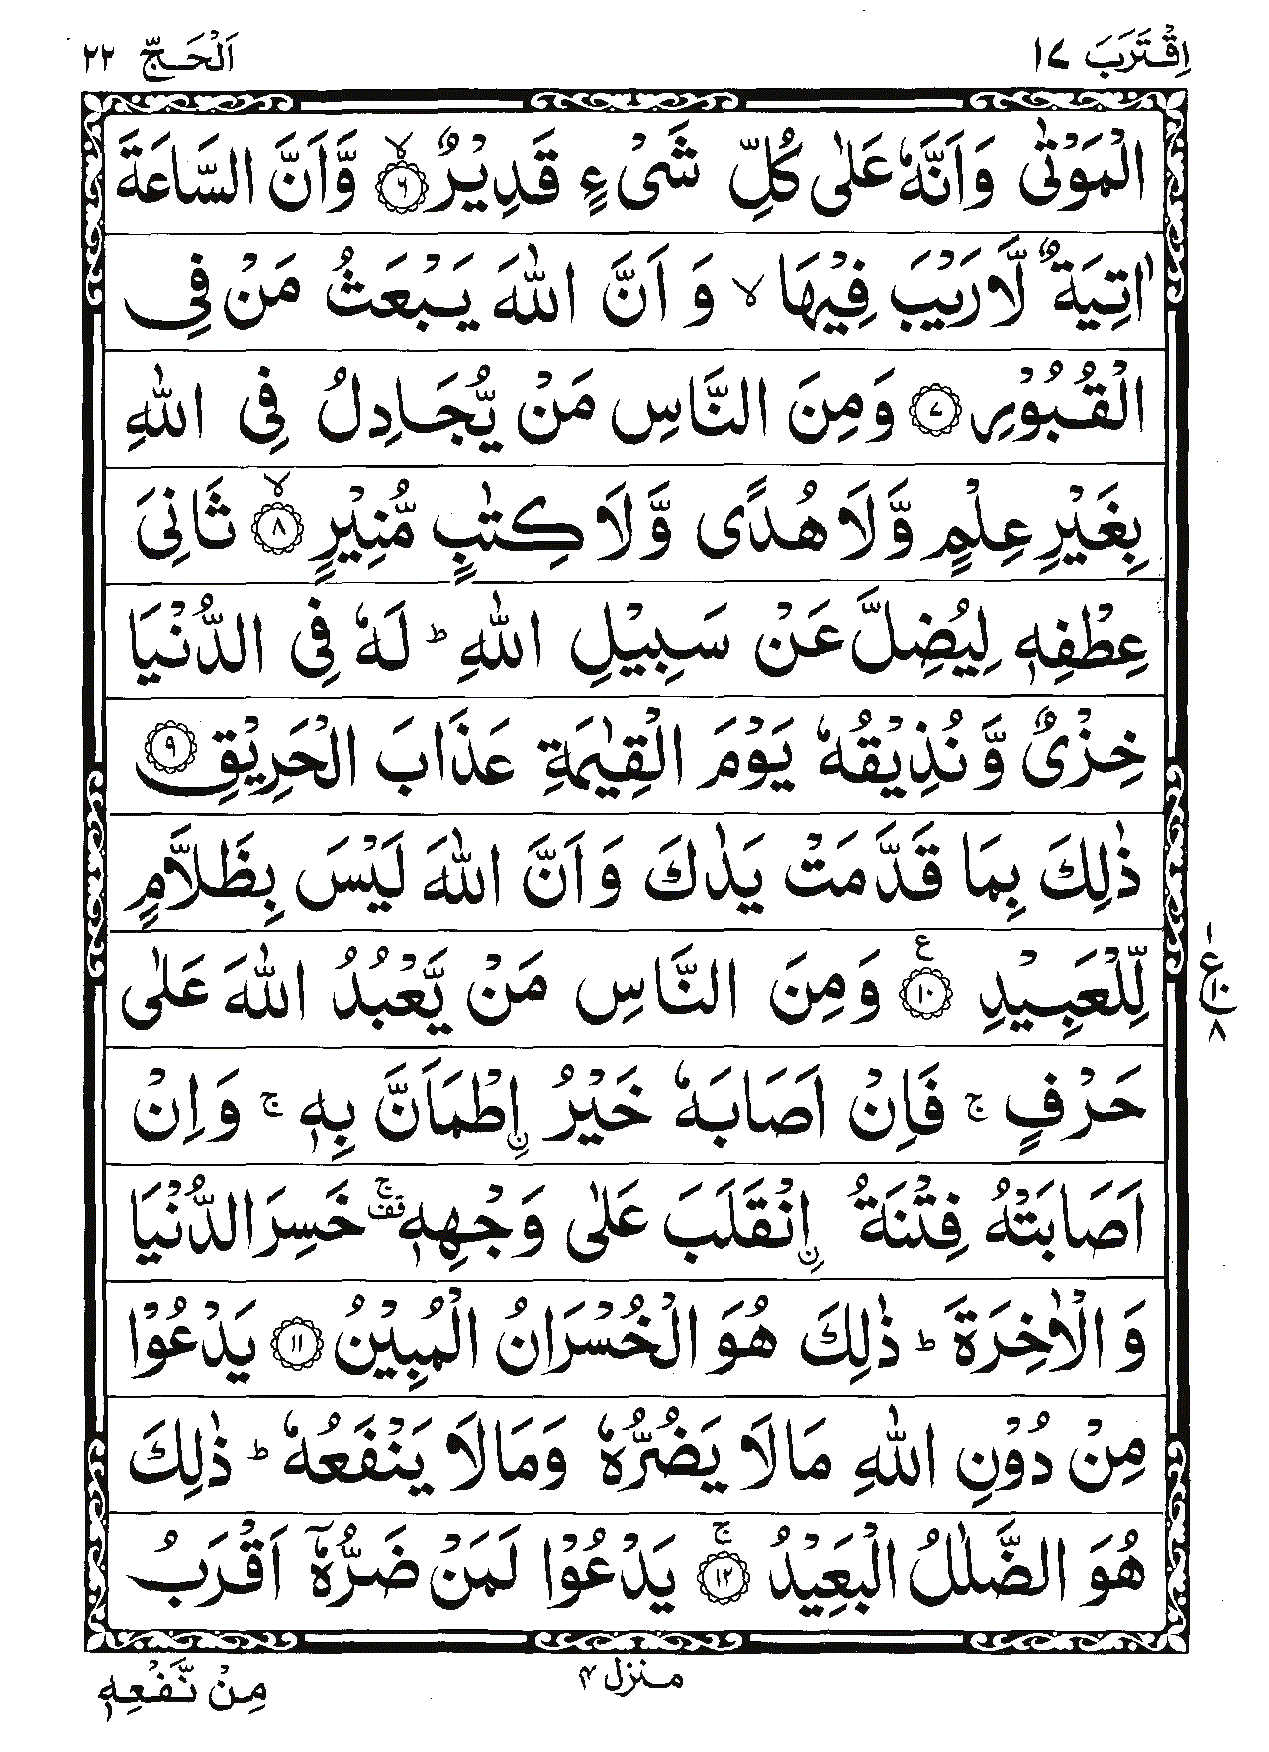 اِقْتَرَبَ ١٧
اَلْحَجّ ٢٢
الْمَوْتٰى وَاَنَّهٗ عَلٰى كُلِّ شَىْءٍ قَدِيْرٌۙ‏ ﴿٦﴾ وَّاَنَّ السَّاعَةَ
اٰتِيَةٌ لَّا رَيْبَ فِيْهَاۙ وَ اَنَّ اللّٰهَ يَـبْعَثُ مَنْ فِى
الْقُبُوْرِ ﴿٧﴾ وَمِنَ النَّاسِ مَنْ يُّجَادِلُ فِى اللّٰهِ
بِغَيْرِ عِلْمٍ وَّلَا هُدًى وَّلَا كِتٰبٍ مُّنِيْرٍۙ ﴿٨﴾ ثَانِىَ
عِطْفِهٖ لِيُضِلَّ عَنْ سَبِيْلِ اللّٰهِؕ لَهٗ فِى الدُّنْيَا
خِزْىٌ وَّنُذِيْقُهٗ يَوْمَ الْقِيٰمَةِ عَذَابَ الْحَرِيْقِ ﴿٩﴾
ذٰلِكَ بِمَا قَدَّمَتْ يَدٰكَ وَاَنَّ اللّٰهَ لَيْسَ بِظَلَّامٍ
لِّلْعَبِيْدِ ﴿١٠﴾ ع وَمِنَ النَّاسِ مَنْ يَّعْبُدُ اللّٰهَ عَلٰى
١ ع ١٠ ٨
حَرْفٍۚ فَاِنْ اَصَابَهٗ خَيْرُ اۨطْمَاَنَّ بِهٖۚ وَاِنْ
اَصَابَتْهُ فِتْنَةُ اۨنْقَلَبَ عَلٰى وَجْهِهٖۚ قف خَسِرَ الدُّنْيَا
وَالْاٰخِرَةَؕ ذٰلِكَ هُوَ الْخُسْرَانُ الْمُبِيْنُ ﴿١١﴾ يَدْعُوْا
مِنْ دُوْنِ اللّٰهِ مَا لَا يَضُرُّهٗ وَمَا لَا يَنْفَعُهٗؕ ذٰلِكَ
هُوَ الضَّلٰلُ الْبَعِيْدُۚ ﴿١٢﴾ يَدْعُوْا لَمَنْ ضَرُّهٗۤ اَقْرَبُ
منزل ۴
مِنْ نَّفْعِهٖ